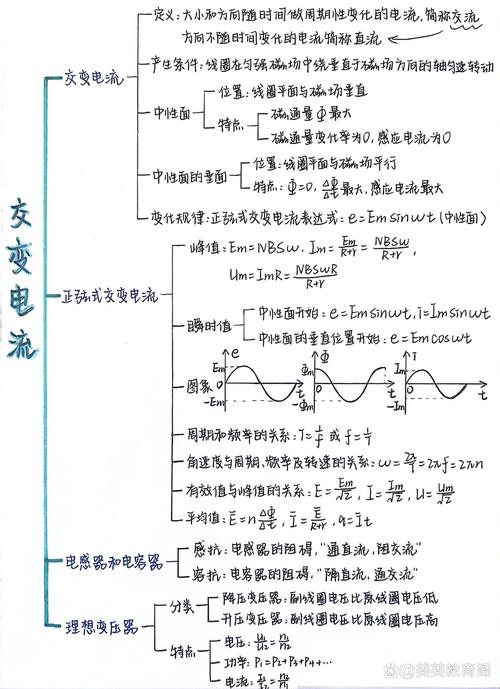 交变电流
交变电流
定义:大小和方向随时间做周期性变化的电流,简称交流
方向不随时间变化的电流简称直流
产生条件:线圈在匀强磁场中绕垂直于磁场方向的轴匀速转动
中性面
位置:线圈平面与磁场垂直
特点
磁通量Φ最大
磁通量变化率为0,感应电流为0
中性面的垂面
位置:线圈平面与磁场平行
特点:Φ=0,ΔΦ/Δt最大,感应电流最大
变化规律:正弦式交变电流表达式:e=Emsinωt(中性面)
正弦式交变电流
峰值:Em=NBSω,Im=Em/R+r=NBSω/R+r,
Um=ImR=NBSωR/R+r
瞬时值
中性面开始:e=Emsinωt,i=Imsinωt
中性面的垂直位置开始:e=Emcosωt
图象
e Em 0 -Em t
Φ Φm 0 -Φm t
i Im 0 -Im t
周期和频率的关系:T=1/f 或 f=1/T
角速度与周期、频率及转速的关系:ω=2π/T=2πf=2πn
有效值与峰值的关系:E=Em/√2,I=Im/√2,U=Um/√2
平均值:Ē=nΔΦ/Δt,Ī=Ē/R+r,q=Īt
电感器和电容器
感抗:电感器的阻碍,"通直流,阻交流"
容抗:电容器的阻碍,"隔直流,通交流"
理想变压器
分类
降压变压器:副线圈电压比原线圈电压低
升压变压器:副线圈电压比原线圈电压高
特点
电压:U1/U2=n1/n2
功率:P1=P2+P3+P4+…
电流:I1/I2=n2/n1
@美美教育阁